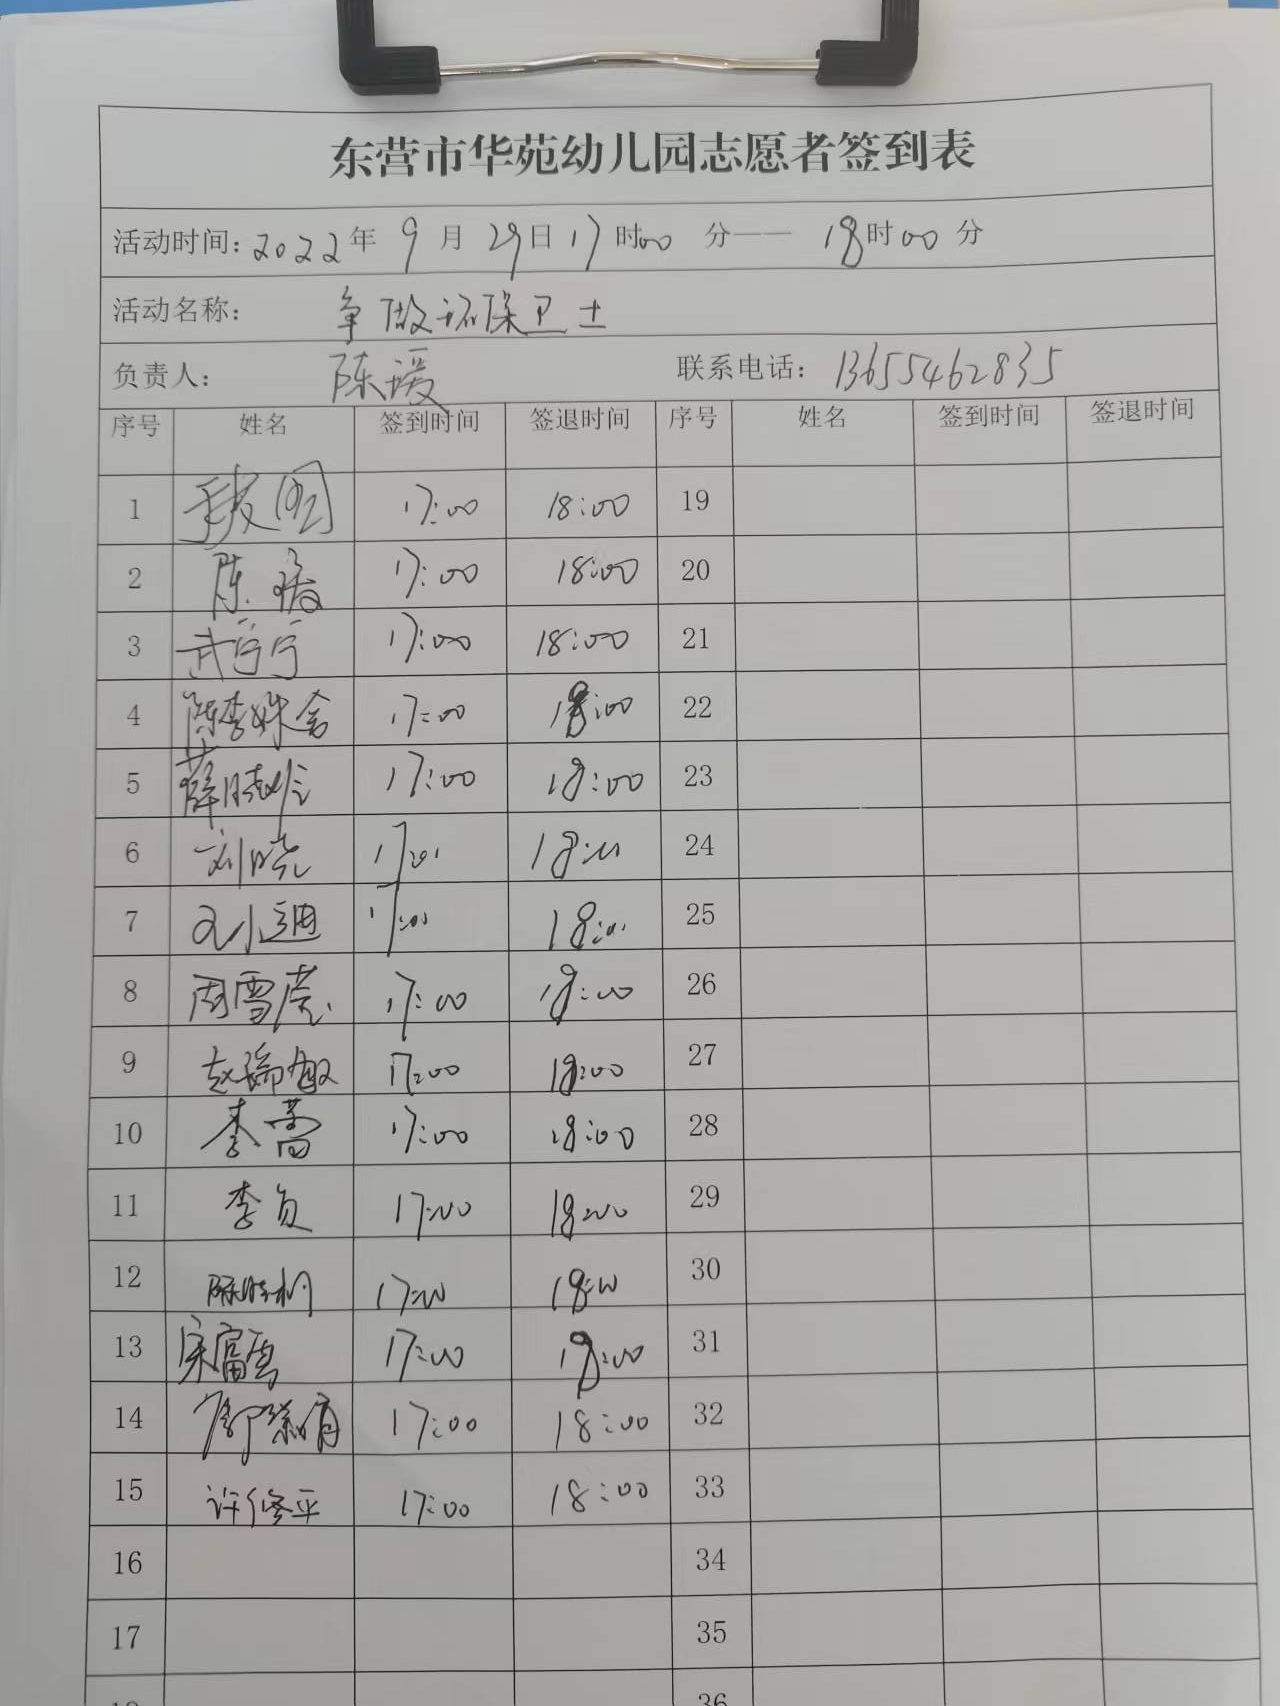 东营市华苑幼儿园志愿者签到表
活动时间：2022年 9月 29日 17时00分—— 18时00分
活动名称： 争做环保卫士
负责人： 陈瑷 联系电话：13655462835
序号 姓名 签到时间 签退时间 序号 姓名 签到时间 签退时间
1 17:00 18:00 19
2 陈瑷 17:00 18:00 20
3 武宁宁 17:00 18:00 21
4 陈李姝含 17:00 18:00 22
5 薛 17:00 18:00 23
6 刘晓 17:00 18:00 24
7 17:00 18:00 25
8 周雪 17:00 18:00 26
9 赵瑞敏 17:00 18:00 27
10 李蕾 17:00 18:00 28
11 李 17:00 18:00 29
12 17:00 18:00 30
13 宋富 17:00 18:00 31
14 17:00 18:00 32
15 许修平 17:00 18:00 33
16 34
17 35
36